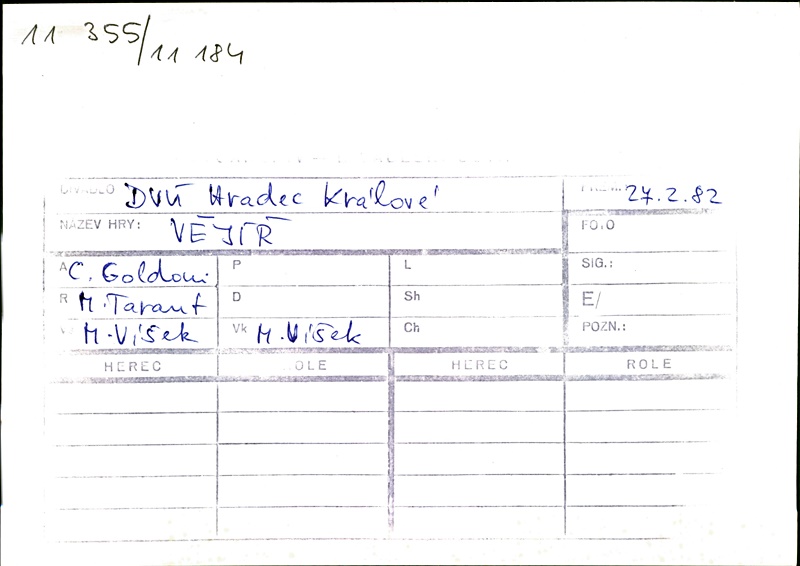 11 355/11 184
DIVADLO DVÚ Hradec Králové 27.2.82
NÁZEV HRY: VĚJÍŘ FOTO
A C. Goldoni P L SIG.:
R M. Tarant D Sh E/
V M. Víšek Vk M. Víšek Ch POZN.:
HEREC ROLE HEREC ROLE